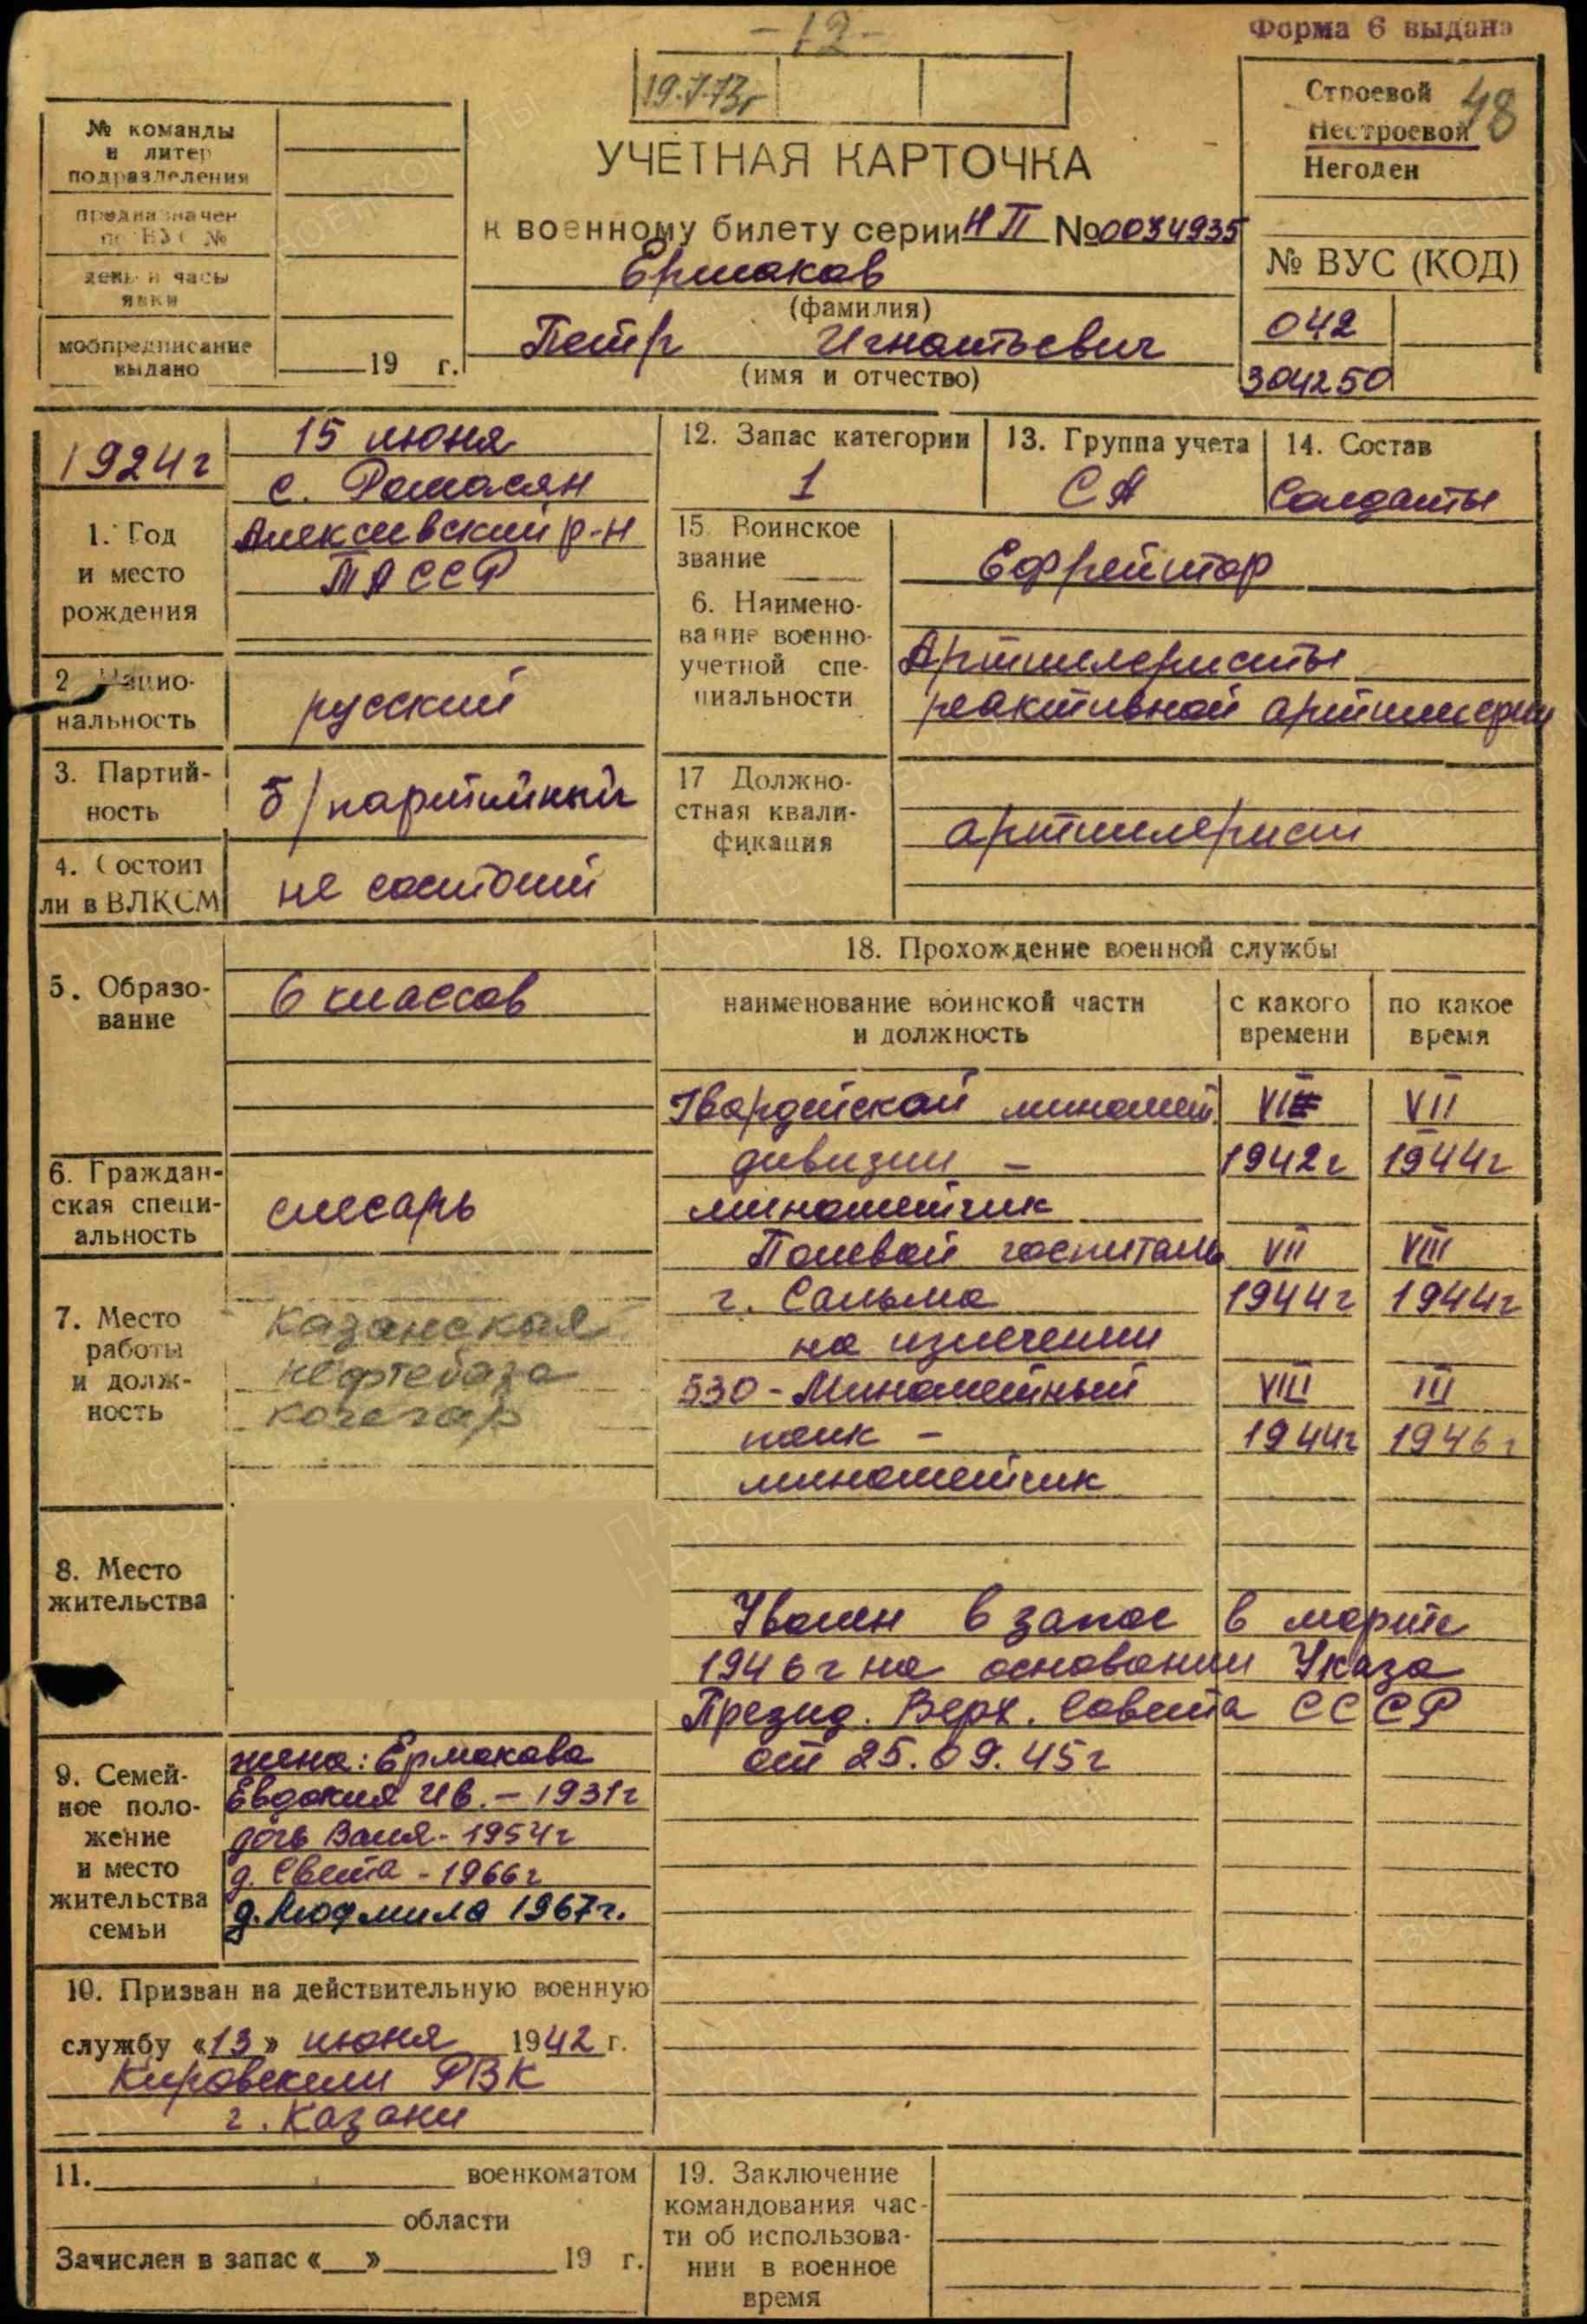 -12-
Форма 6 выдана
19.7.73г
48
№ команды
и литер
подразделения
предназначен
по ВУС №
день и часы
явки
мобпредписание
выдано
19 г.
УЧЕТНАЯ КАРТОЧКА
к военному билету серии НП №0034935
Ермаков
(фамилия)
Петр Игнатьевич
(имя и отчество)
Строевой
Нестроевой
Негоден
№ ВУС (КОД)
042
304250
1924г
1. Год
и место
рождения
15 июня
с. Ромасян
Алексеевский р-н
ТАССР
2 Нацио-
нальность
русский
3. Партий-
ность
б/партийный
4. Состоит
ли в ВЛКСМ
не состоит
5. Образо-
вание
6 классов
6. Граждан-
ская специ-
альность
слесарь
7. Место
работы
и долж-
ность
Казанская
нефтебаза
кочегар
8. Место
жительства
9. Семей-
ное поло-
жение
и место
жительства
семьи
жена: Ермакова
Евдокия Ив. - 1931г
дочь Валя - 1954г
д. Света - 1966г
д. Людмила 1967г.
10. Призван на действительную военную
службу «13» июня 1942 г.
Кировским РВК
г. Казани
11. военкоматом
области
Зачислен в запас « » 19 г.
12. Запас категории
1
13. Группа учета
СА
14. Состав
Солдаты
15. Воинское
звание
Ефрейтор
6. Наимено-
вание военно-
учетной спе-
циальности
Артиллеристы
реактивной артиллерии
17 Должно-
стная квали-
фикация
артиллерист
18. Прохождение военной службы
наименование воинской части
и должность
с какого
времени
по какое
время
Гвардейской миномет. VII VII
дивизии - 1942г 1944г
минометчик
Полевой госпиталь VII VIII
г. Сальма 1944г 1944г
на излечении
530 - Минометный VIII III
полк - 1944г 1946г
минометчик
Уволен в запас в марте
1946г на основании Указа
Презид. Верх. Совета СССР
от 25.09.45г
19. Заключение
командования час-
ти об использова-
нии в военное
время